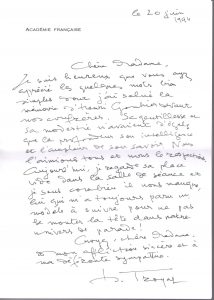 le 20 juin
1994
ACADÉMIE FRANÇAISE
Chère Madame,
Je suis heureux que vous ayez
apprécié les quelques mots
simples dont j'ai salué la
mémoire d'Étienne
nos confrères. Sa gentillesse et
sa modestie n'avaient d'égales
que la profondeur de son intelligence
et l'ampleur de son savoir. Nous
l'aimions tous et nous le respections.
Aujourd'hui, je regarde sa place
vide dans la salle de séance et
je sens combien il nous manque,
lui qui m'a toujours paru un
modèle à suivre pour ne pas
se monter la tête dans notre
univers de parade!
Croyez, chère Madame,
à mon affection sincère et à
ma sympathie.
H. Troyat